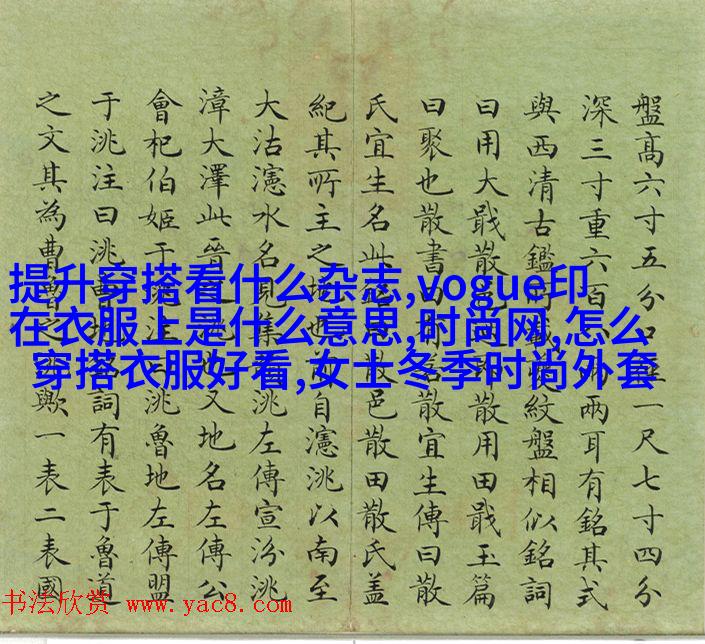 盤高六寸五分口一尺七寸四分
深三寸重六百兩兩耳有銘其式
與西清古鑑紋盤相似銘詞
曰用大戩散散用田戩玉篇
曰聚也散書曰散宜生傳曰散
氏宜生名此散邑散田散氏蓋
紀其所主之地也自瀗洮以南至
大沽瀗水名見集洮左傳宣汾洮
漳大澤此晉也又地名左傳公
會杞伯姬于洮注曰洮魯地左傳盟
于洮注曰洮曹地銘詞有表于魯道
之文其為曹魯之洮歟一表二表國
提升穿搭看什么杂志,vogue印
在衣服上是什么意思,时尚网,怎么
穿搭衣服好看,女士冬季时尚外套
书法欣赏 www.yac8.com